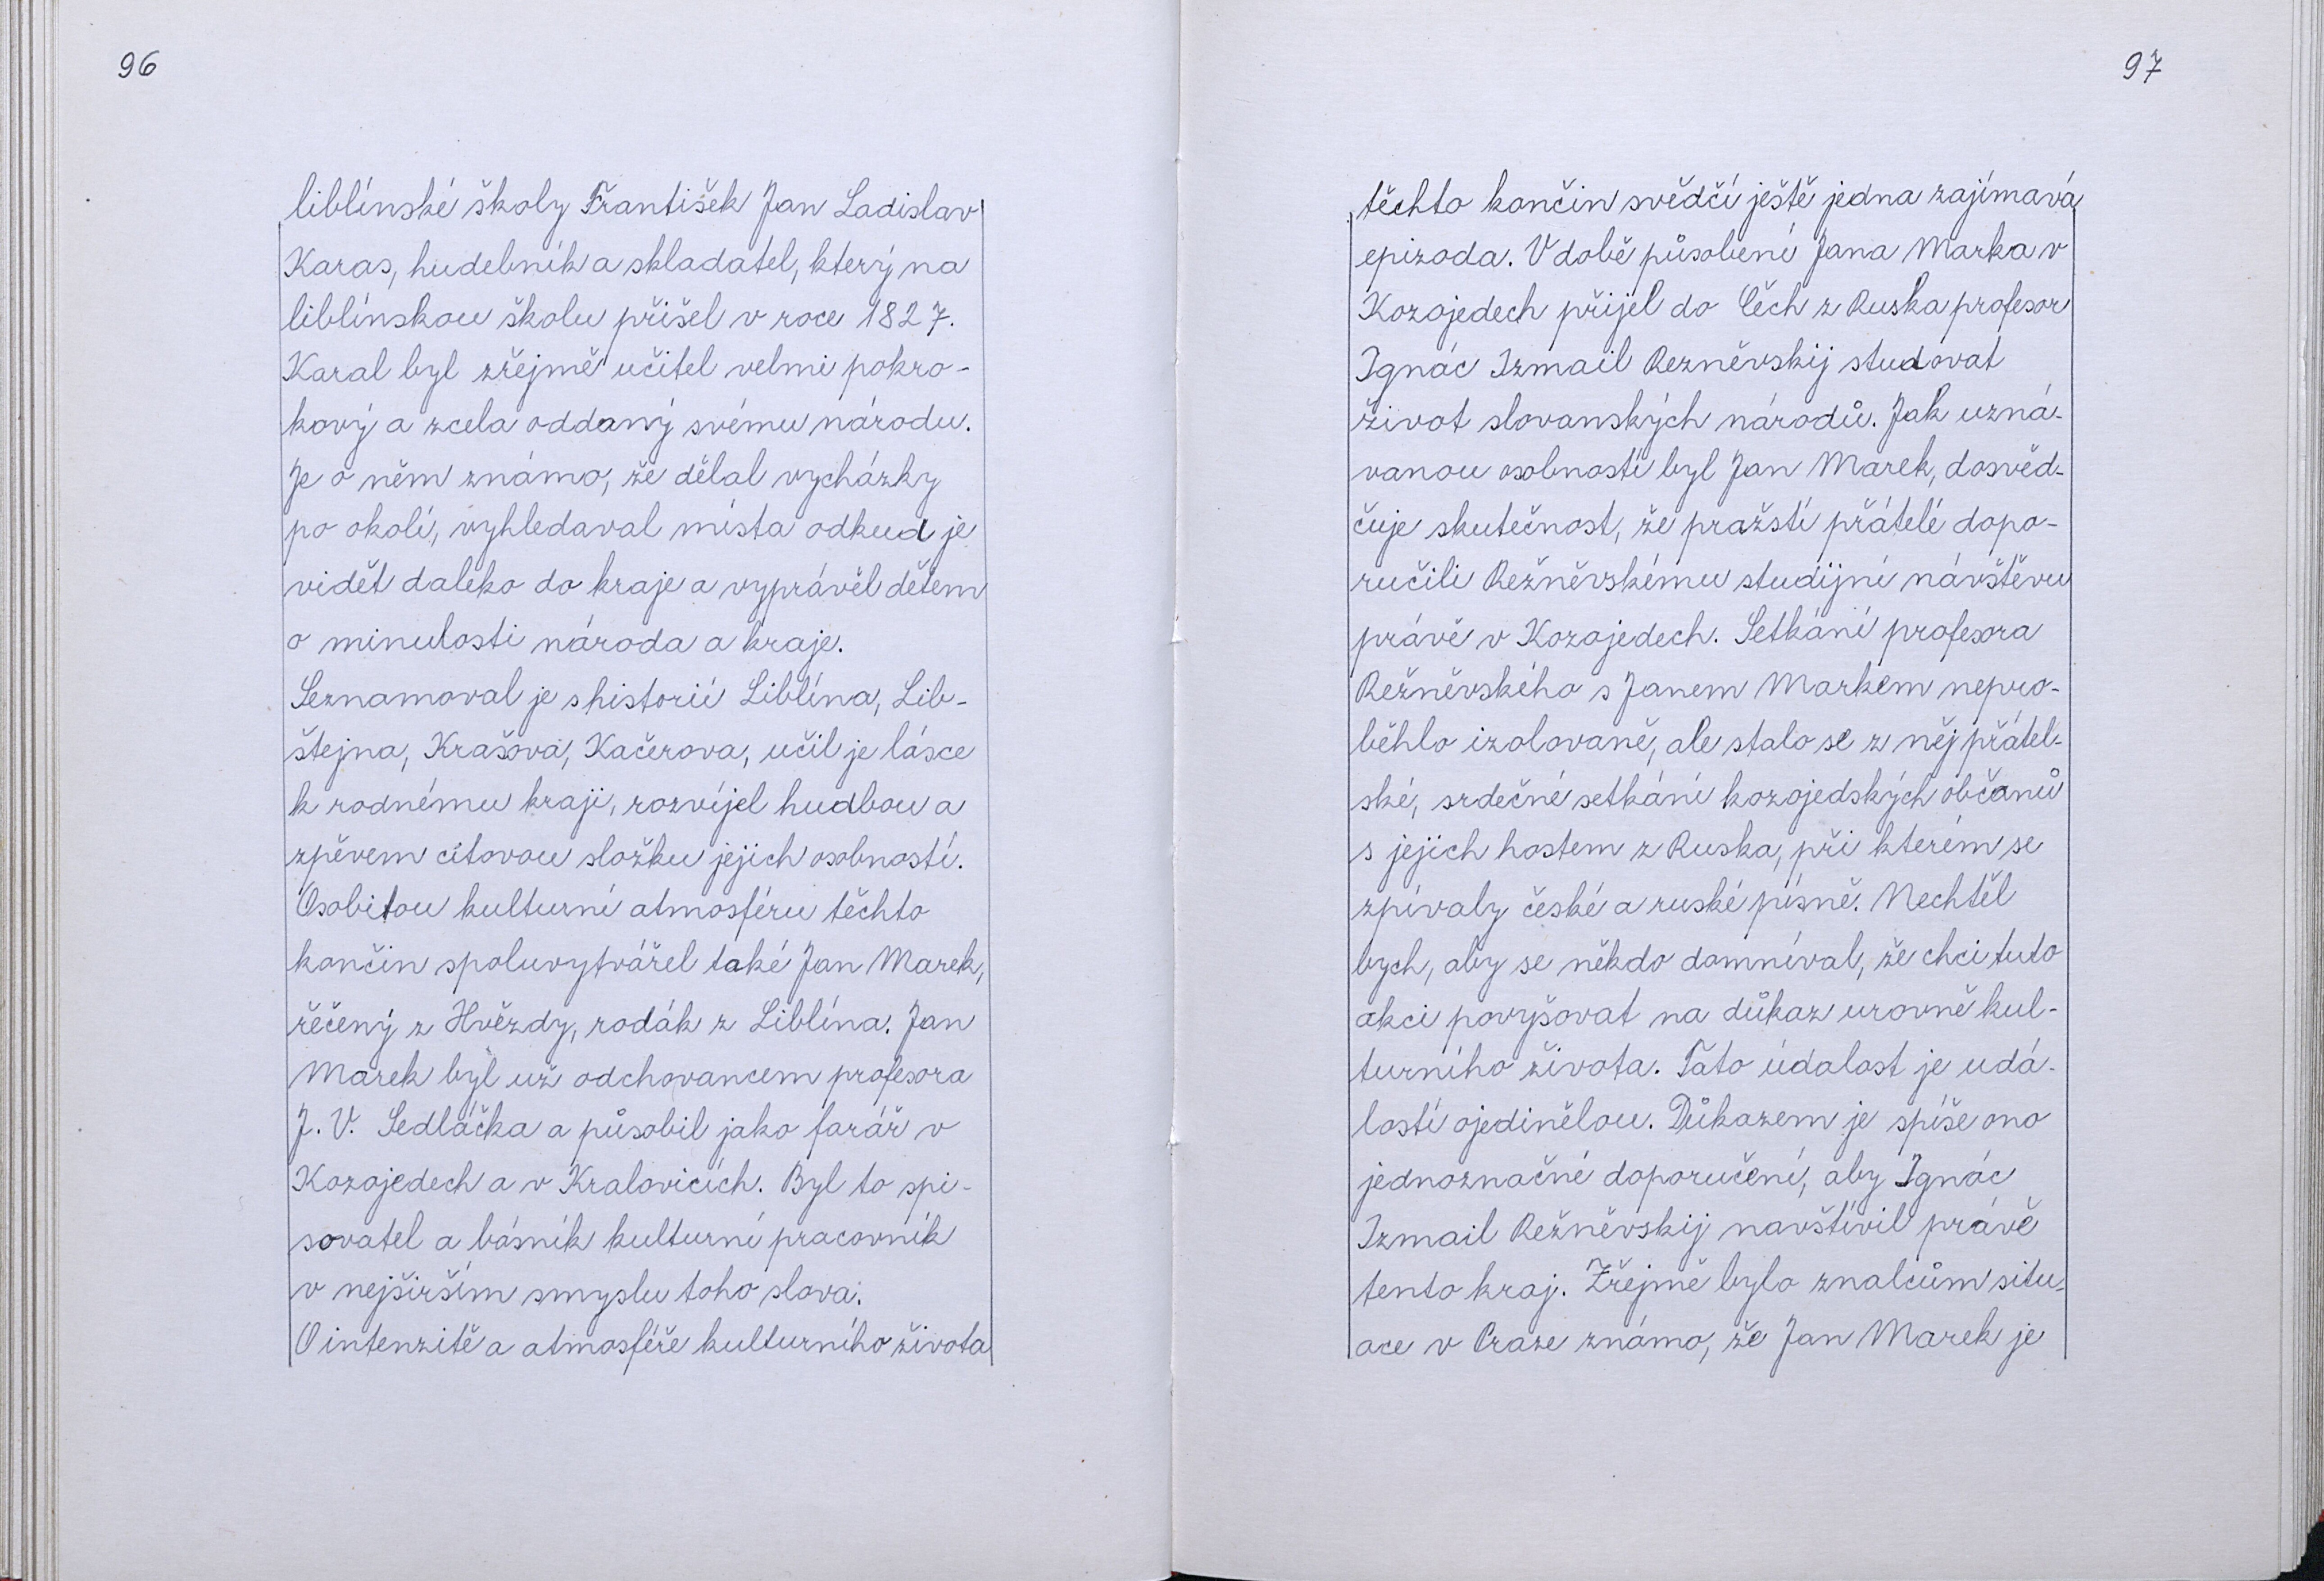 96
liblínské školy František Jan Ladislav
Karas, hudebník a skladatel, který na
liblínskou školu přišel v roce 1827.
Karal byl zřejmě učitel velmi pokro-
kový a zcela oddaný svému národu.
Je o něm známo, že dělal vycházky
po okolí, vyhledaval místa odkud je
vidět daleko do kraje a vyprávěl dětem
o minulosti národa a kraje.
Seznamoval je s historií Liblína, Lib-
štejna, Krašova, Kačerova, učil je lásce
k rodnému kraji, rozvíjel hudbou a
zpěvem citovou složku jejich osobností.
Osobitou kulturní atmosféru těchto
končin spoluvytvářel také Jan Marek,
řěčený z Hvězdy, rodák z Liblína. Jan
Marek byl už odchovancem profesora
J. V. Sedláčka a působil jako farář v
Kozojedech a v Kralovicích. Byl to spi-
sovatel a básník kulturní pracovník
v nejširším smyslu toho slova.
O intenzitě a atmosféře kulturního života
97
těchto končin svědčí ještě jedna zajímavá
epizoda. V době působení Jana Marka v
Kozojedech přijel do Čech z Ruska profesor
Ignác Izmail Rezněvskij studovat
život slovanských národů. Jak uzná-
vanou osobností byl Jan Marek, dosvěd-
čuje skutečnost, že pražstí přátelé dopo-
ručili Režněvskému studijní návštěvu
právě v Kozojedech. Setkání profesora
Režněvského s Janem Markem nepro-
běhlo izolovaně, ale stalo se z něj přátel-
ské, srdečné setkání kozojedských občanů
s jejich hostem z Ruska, při kterém se
zpívaly české a ruské písně. Nechtěl
bych, aby se někdo domníval, že chci tuto
akci povyšovat na důkaz urovně kul-
turního života. Tato údalost je udá-
lostí ojedinělou. Důkazem je spíše ono
jednoznačné doporučení, aby Ignác
Izmail Režněvskij navštívil právě
tento kraj. Zřejmě bylo znalcům situ-
ace v Praze známo, že Jan Marek je